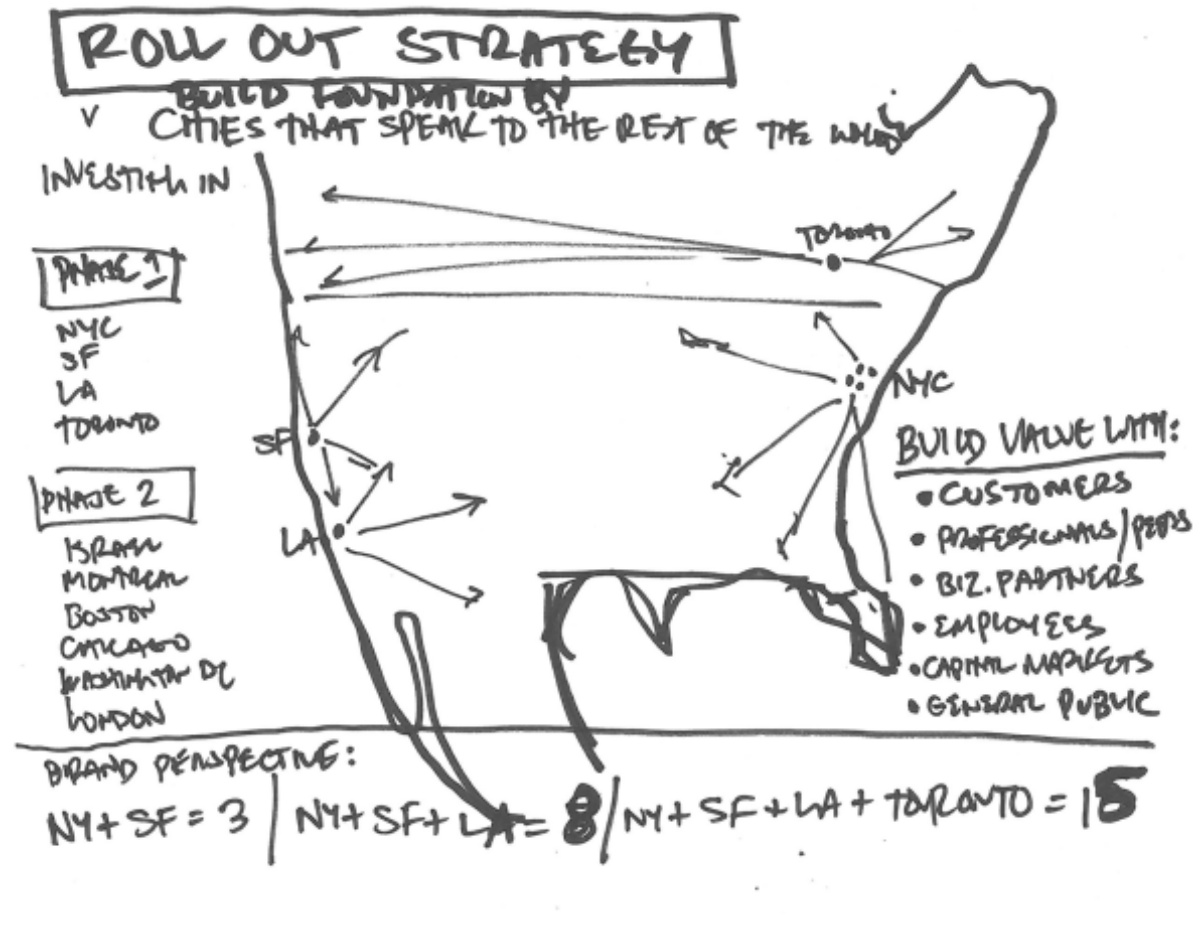 ROLL OUT STRATEGY
BUILD FOUNDATION BY
V
CITIES THAT SPEAK TO THE REST OF THE WORLD
INVESTING IN
PHASE 1
NYC
SF
LA
TORONTO
PHASE 2
ISRAEL
MONTREAL
BOSTON
CHICAGO
WASHINGTON DC
LONDON
TORONTO
NYC
SF
LA
BUILD VALUE WITH:
• CUSTOMERS
• PROFESSIONALS/PEERS
• BIZ. PARTNERS
• EMPLOYEES
• CAPITAL MARKETS
• GENERAL PUBLIC
BRAND PERSPECTIVE:
NY + SF = 3 | NY + SF + LA = 8 / NY + SF + LA + TORONTO = 15